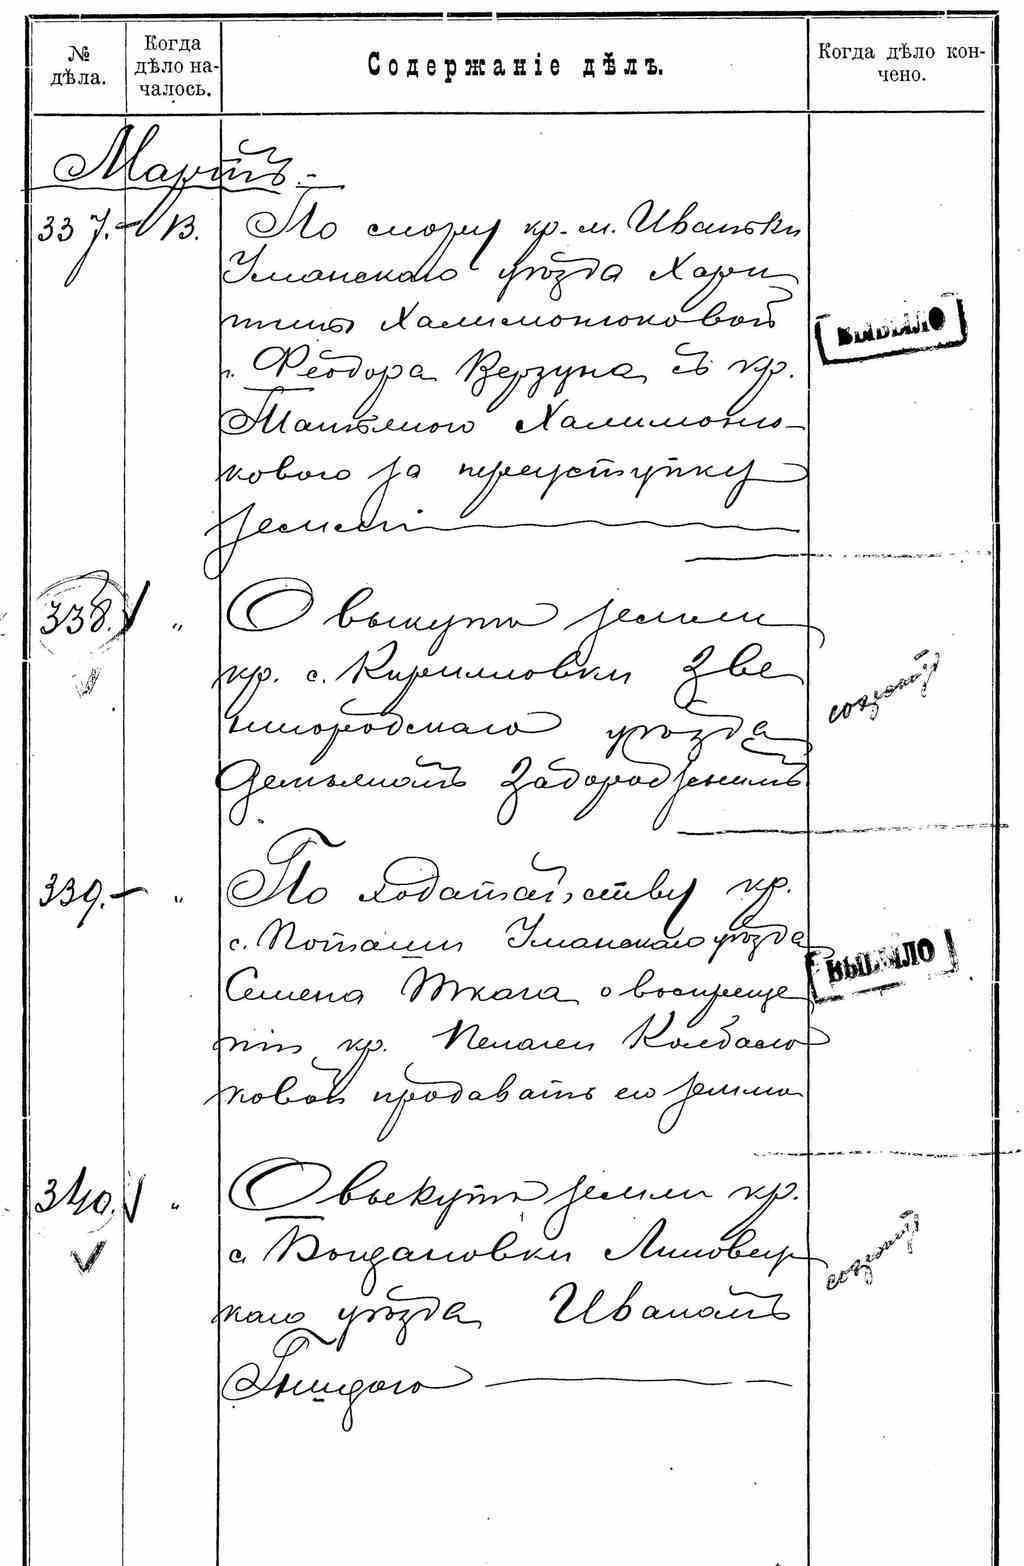 № дѣла.
Когда дѣло началось.
Содержаніе дѣлъ.
Когда дѣло кончено.
Мартъ.
337. В. По спору кр. м. Иваньки
Уманскаго уѣзда Хари
тины Халимонюковой
и Феодора Верзуна съ кр.
Халимоню-
коваго за переуступку
земли
ВЫБЫЛО
338. " О выкупѣ земли
кр. с. Кирилловки Зве
нигородскаго уѣзда
Демьяномъ Забородзенимъ
состоитъ
339. " По ходатайству кр.
с. Поташни Уманскаго уѣзда
Семена Ткача о воспреще
ніи кр. Пелагеи Колбасю
ковой продавать его землю
ВЫБЫЛО
340. " О выкупѣ земли кр.
с. Богдановки Липовец
каго уѣзда Иваномъ
Гнидого
состоитъ